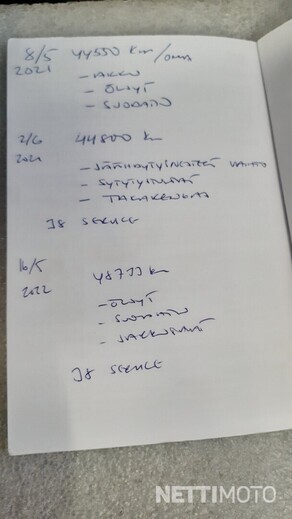 8/5 44550 Km/omas
2021 - AKKU
- ÖLJYT
- SUODATIN
2/6 44800 Km
2021 - JÄÄHDYTYSNESTEEN VAIHTO
- SYTYTYSTULPAT
- TAKARENGAS
J8 SERVICE
16/5
48773 Km
2022 - ÖLJYT
- SUODATIN
- JARRUPALAT
J8 SERVICE
NETTIMOTO